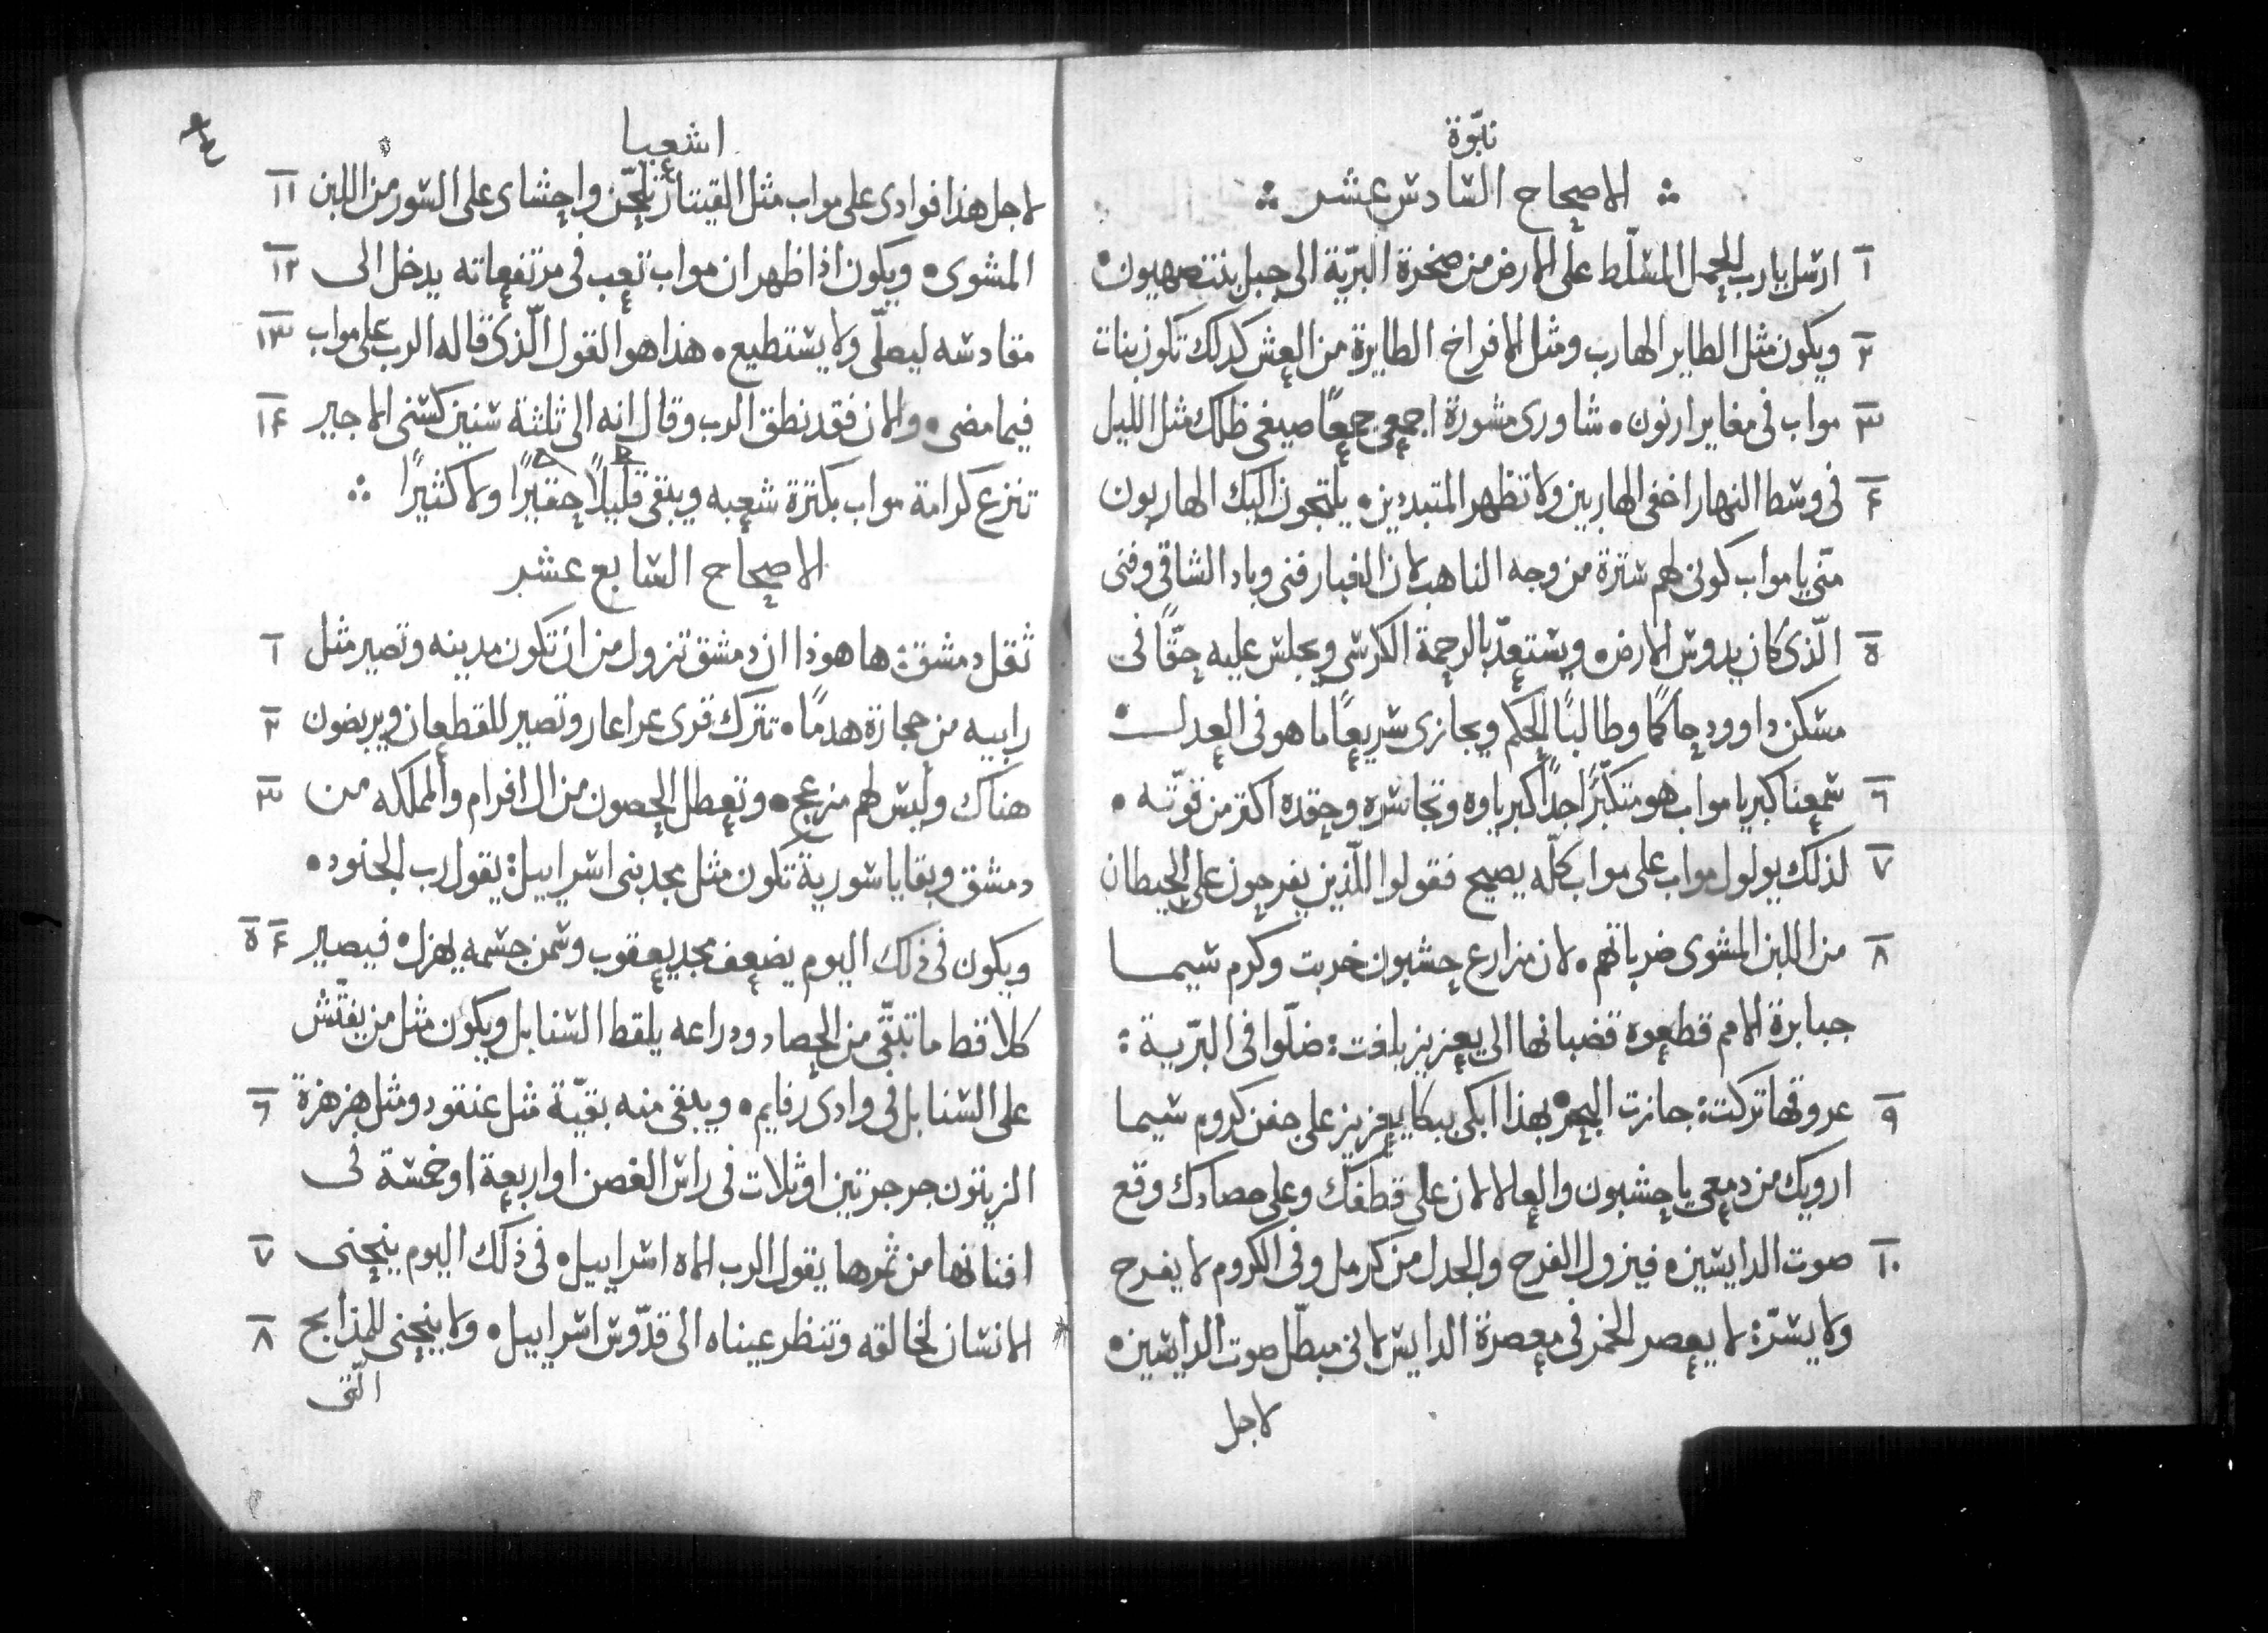 نبّوة
الاصحاح السادس عشر
١ ارسل يا رب الحمل المسلّط على الارض من صخرة البرّية الى جبل بنت صهيون
٢ ويكون مثل الطاير الهارب ومثل الافراخ الطايرة من العش كدلك تكون بنات
٣ مواب فى مغاير ارنون شاورى مشورة اجمعى جمعًا صيغى ظلك مثل الليل
٤ فى وسط النهار اخفى الهاربين ولا تظهر المتبددين يلتجون اليك الهاربون
منّى يا مواب كونى لهم سترة من وجه الناهب لان الغبار فنى وباد الشاقى وفنى
٥ الّذى كان يدوس الارض ويستعدّ بالرحمة الكرسى ويجلس عليه حقًّا فى
مسكن داوود حاكمًا وطالبًا الحكم ويجازى سريعًا ما هو فى العدل
٦ سمعنا كبريا مواب هو متكبّرًا جدًا كبرياوه وتجاسره وحقده اكتر من قوّته
٧ لذلك يولول مواب على مواب كلّه يصيح فقولوا اللّذين يفرحون على الحيطان
٨ من اللبن المشوى ضرباتهم لان مزارع حشبون خربت وكرم سيما
جبابرة الامم قطعوه قضبانها الى يعزيز بلغت ضلّوا فى البرّية
٩ عروقها تركت جازت البحر بهذا ابكى ببكا يعزيز على جفن كروم سيما
ارويك من دمعى يا حشبون والعالا لان على قطفك وعلى حصادك وقع
١٠ صوت الدايسين فيزول الفرح والجدل من كرمل وفى الكروم لا يفرح
ولا يسرّ لا يعصر الخمر فى معصرة الدايس لانى مبطّل صوت الدايسين
لاجل
اشعيا
لاجل هذا فوادى على مواب مثل القيتار يلحّن واحشاى على السور من اللبن ١١
المشوى ويكون اذا ظهر ان مواب تعب فى مرتفعاته يدخل الى ١٢
مقادسه ليصلّى ولا يستطيع هذا هو القول الّذى قاله الرب على مواب ١٣
فيما مضى والان فقد نطق الرب وقال انه الى ثلثة سنين كسنى الاجير ١٤
تنزع كرامة مواب بكترة شعبه ويبقى قليلًا حقيرًا ولا كثيرًا
الاصحاح السابع عشر
ثقل دمشق ها هوذا ان دمشق تزول من ان تكون مدينه وتصير مثل ١
رابيه من حجارة هدمًا تترك قرى عراعار وتصير للقطعان ويربضون ٢
هناك وليس لهم مزعج وتعطل الحصون من ال افرام والمملكه من ٣
دمشق وبقايا سورية تكون مثل مجد بنى اسراييل يقول رب الجنود
ويكون فى ذلك اليوم يضعف مجد يعقوب وسمن جسمه يهزل فيصير ٤ ٥
كلاقط ما تبقّى من الحصاد ودراعه يلقط السنابل ويكون مثل من يفتّش
على السنابل فى وادى رفايم ويبقى منه بقيّة مثل عنقود ومثل هزهزة ٦
الزيتون جرجرتين او ثلات فى راس الغصن او اربعة او خمسة فى
افنانها من ثمرها يقول الرب الاه اسراييل فى ذلك اليوم ينحنى ٧
الانسان لخالقه وتنظر عيناه الى قدّوس اسراييل ولا ينحنى للمذابح ٨
الّتى